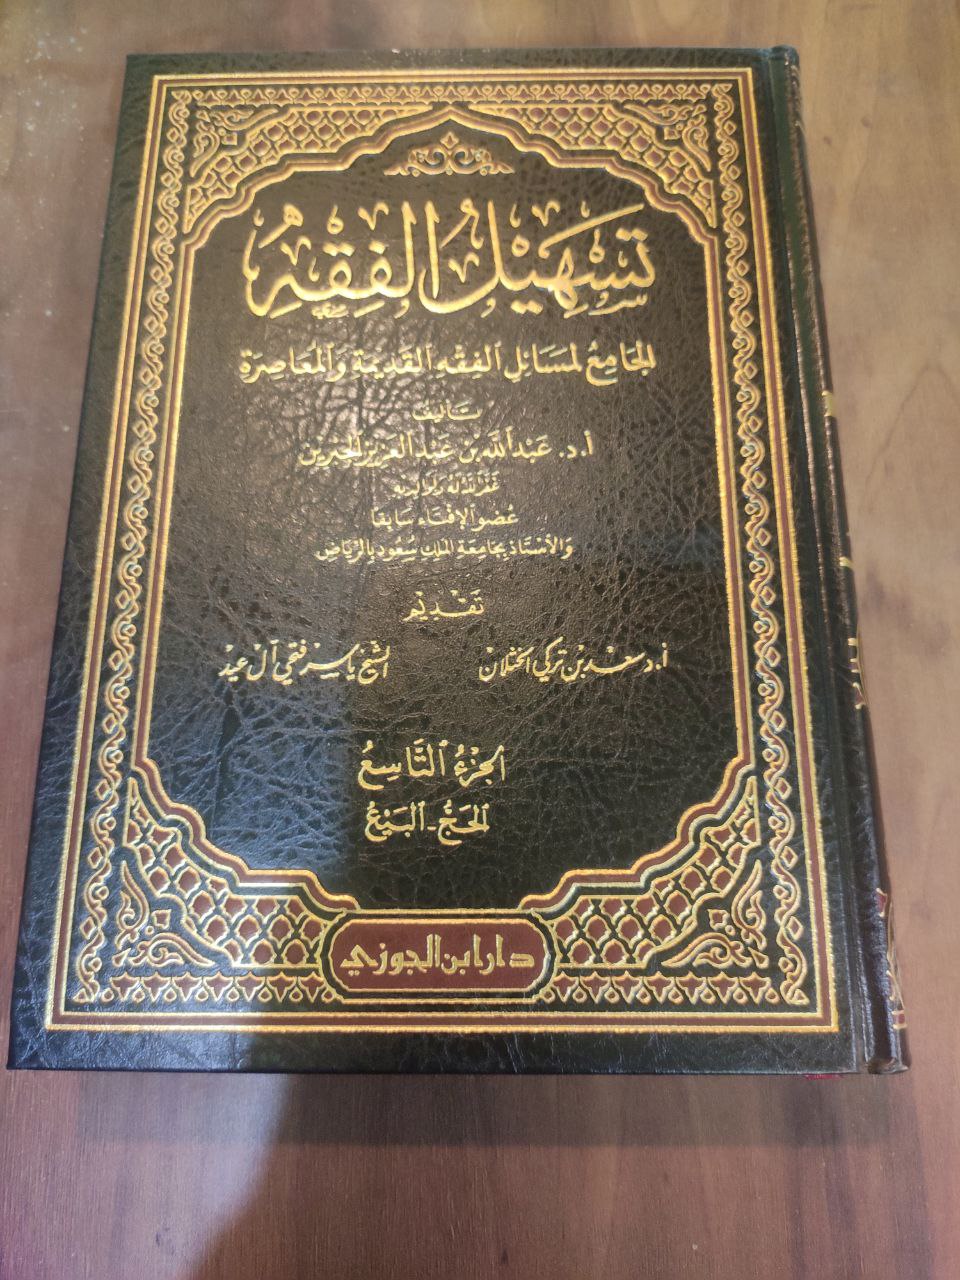 تَسْهِيْلُ الفِقْهِ
الجَامِعُ لِمَسَائِلِ الفِقْهِ القَدِيمَةِ وَالمُعَاصِرَةِ
تَأليف
أ.د. عَبْد اللَّه بن عَبْد العَزِيز الجبرين
غفر الله له ولوالديه
عُضو الإفتاء سَابقًا
وَالأسْتَاذ بجَامعَة الملك سُعُود بالرِّيَاض
تَقْدِيْم
أ.د سعد بن تركي الخثلان
الشيخ ياسر فتحي آل عيد
الجُزْءُ التَّاسِعُ
الحَجُّ - البَيْعُ
دار ابن الجوزي